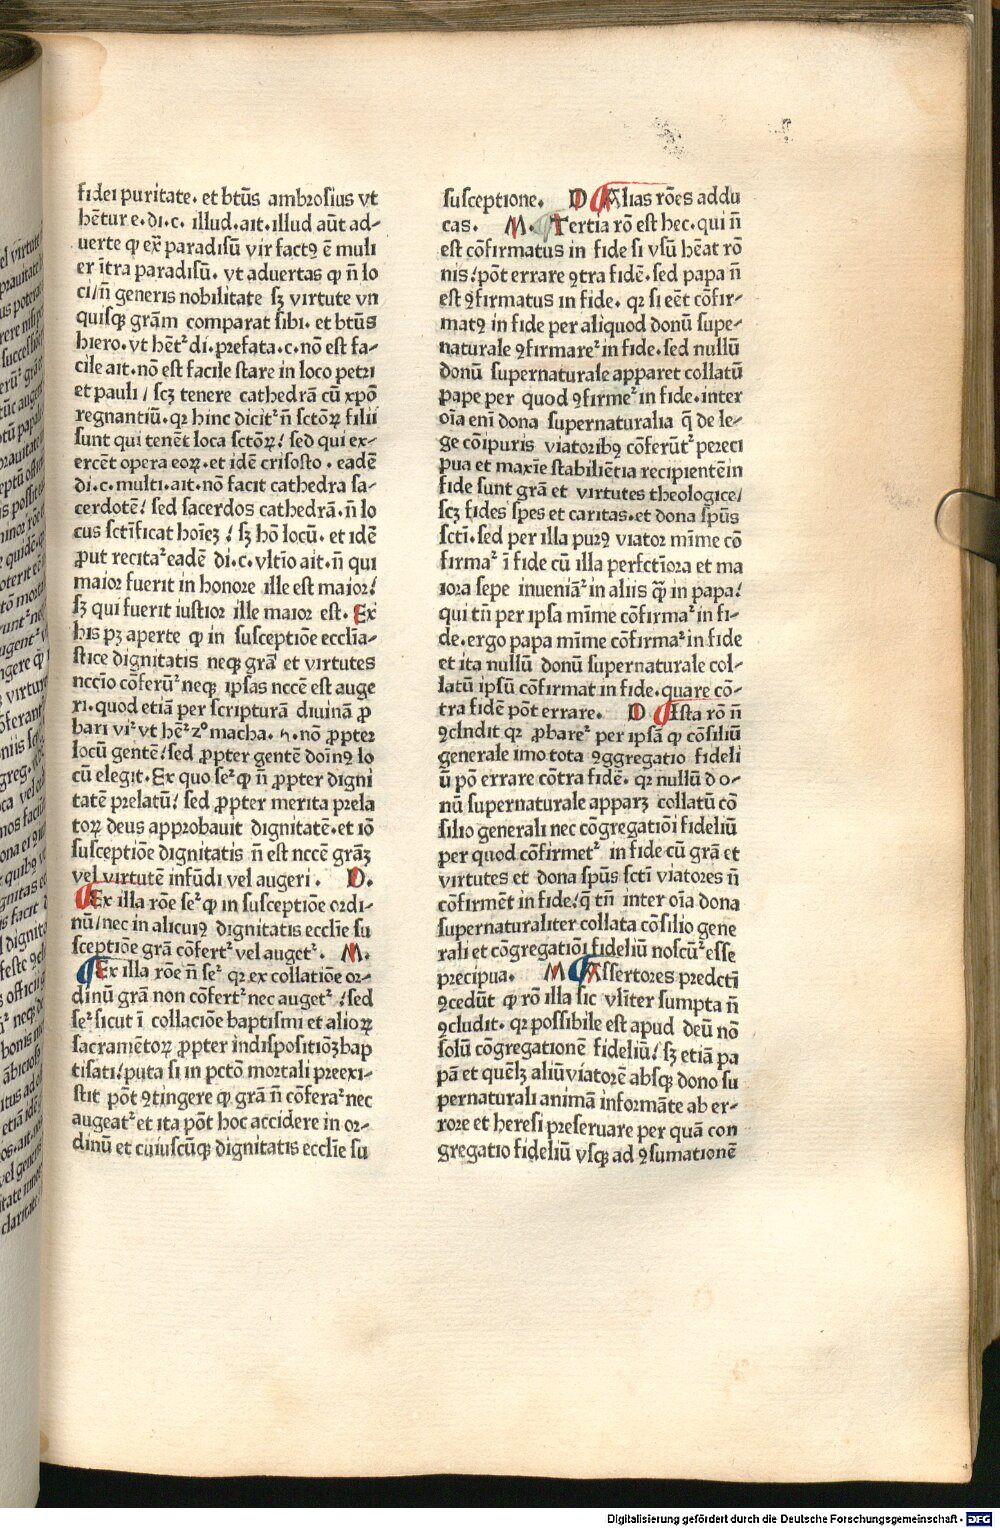 fidei puritate. et btūs ambrosius vt
hētur e.di.c. illud.ait.illud aūt ad-
uerte ꝙ ex̄ paradisū vir factꝯ ē muli
er ītra paradisū. vt aduertas ꝙ n̄ lo
ci/n̄ generis nobilitate sꝫ virtute vn
quisqꝫ grām comparat sibi. et btūs
hiero.vt hēt᷑ di.prefata.c.nō est fa-
cile ait.nō est facile stare in loco petri
et pauli / scꝫ tenere cathedrā cū xpō
regnantiū.qꝛ hinc dicit᷑ n̄ sctōꝝ filii
sunt qui tenēt loca sctōꝝ/ sed qui ex-
ercēt opera eoꝝ.et idē crisosto. eadē
di.c.multi.ait.nō facit cathedra sa-
cerdotē/ sed sacerdos cathedrā.n̄ lo
cus sctīficat hoīeꝫ / sꝫ hō locū. et idē
ꝓut recitat᷑ eadē di.c.vltīo ait.n̄ qui
maior fuerit in honore ille est maior/
sꝫ qui fuerit iustior ille maior est. Ex
his pꝫ aperte ꝙ in susceptiōe ecclīa-
stice dignitatis neqꝫ grā et virtutes
nccīo cōferūt᷑ neqꝫ ipsas nccē est auge
ri.quod etiā per scripturā diuinā ꝓ
bari vīt᷑ vt hēt᷑ zº macha. ꝩ.nō ꝓpter
locū gentē/sed ꝓpter gentē doīnꝯ lo
cū elegit.Ex quo set᷑ ꝙ n̄ ꝓpter digni
tatē prelatū/ sed ꝓpter merita prela
toꝝ deus approbauit dignitatē.et iō
susceptiōe dignitatis n̄ est nccē grāꝫ
vel virtutē infūdi vel augeri. D.
Ex illa rōe set᷑ ꝙ in susceptiōe ordi-
nū/nec in alicuiꝯ dignitatis ecclīe su
sceptiōe grā cōfert᷑ vel auget᷑. M.
Ex illa rōe n̄ set᷑ qꝛ ex collatiōe or-
dinū grā non cōfert᷑ nec auget᷑ /sed
set᷑ sicut ī collaciōe baptismi et alioꝝ
sacramētoꝝ ꝓpter indispositiōꝫ bap
tisati/puta si in pctō mortali preexi-
stit pōt ꝯtingere ꝙ grā n̄ cōferat᷑ nec
augeat᷑ et ita pōt hoc accidere in or-
dinū et cuiuscūqꝫ dignitatis ecclīe su
susceptione. D Alias rōes addu
cas. M. Tertia rō est hec.qui n̄
est cōfirmatus in fide si vsū hēat rō
nis/pōt errare ꝯtra fidē.sed papa n̄
est ꝯfirmatus in fide. qꝛ si eēt cōfir-
matꝯ in fide per aliquod donū supe-
naturale ꝯfirmaret᷑ in fide.sed nullū
donū supernaturale apparet collatū
pape per quod ꝯfirmet᷑ in fide.inter
oīa enī dona supernaturalia q̄ de le-
ge cōipuris viatoribꝯ cōferūt᷑ preci
pua et maxīe stabiliētia recipientē in
fide sunt grā et virtutes theologice/
scꝫ fides spes et caritas.et dona spūs
scti.sed per illa purꝯ viator mīme cō
firmat᷑ ī fide cū illa perfctīora et ma
iora sepe inueniāt᷑ in aliis qͣꝫ in papa/
qui tn̄ per ipsa mīme cōfirmat᷑ in fi-
de.ergo papa mīme cōfirmat᷑ in fide
et ita nullū donū supernaturale col-
latū ipsū cōfirmat in fide.quare cō-
tra fidē pōt errare. D Ista rō n̄
ꝯclndit qꝛ ꝓbaret᷑ per ipsā ꝙ cōsiliū
generale imo tota ꝯggregatio fideli
ū pō errare cōtra fidē. qꝛ nullū do-
nū supernaturale apparꝫ collatū cō
silio generali nec cōgregatiōi fideliū
per quod cōfirmet᷑ in fide cū grā et
virtutes et dona spūs scti viatores n̄
cōfirmēt in fide/q̄ tn̄ inter oīa dona
supernaturaliter collata cōsilio gene
rali et cōgregatiōi fideliū noscūt᷑ esse
precipua. M Assertores predcti
ꝯcedūt ꝙ rō illa sic vl̄iter sumpta n̄
ꝯcludit. qꝛ possibile est apud deū nō
solū cōgregationē fideliū/ sꝫ etiā pa
pā et quēlꝫ aliū viatorē absqꝫ dono su
pernaturali animā informāte ab er-
rore et heresi preseruare per quā con
gregatio fideliū vsqꝫ ad ꝯsumationē
Digitalisierung gefördert durch die Deutsche Forschungsgemeinschaft - DFG